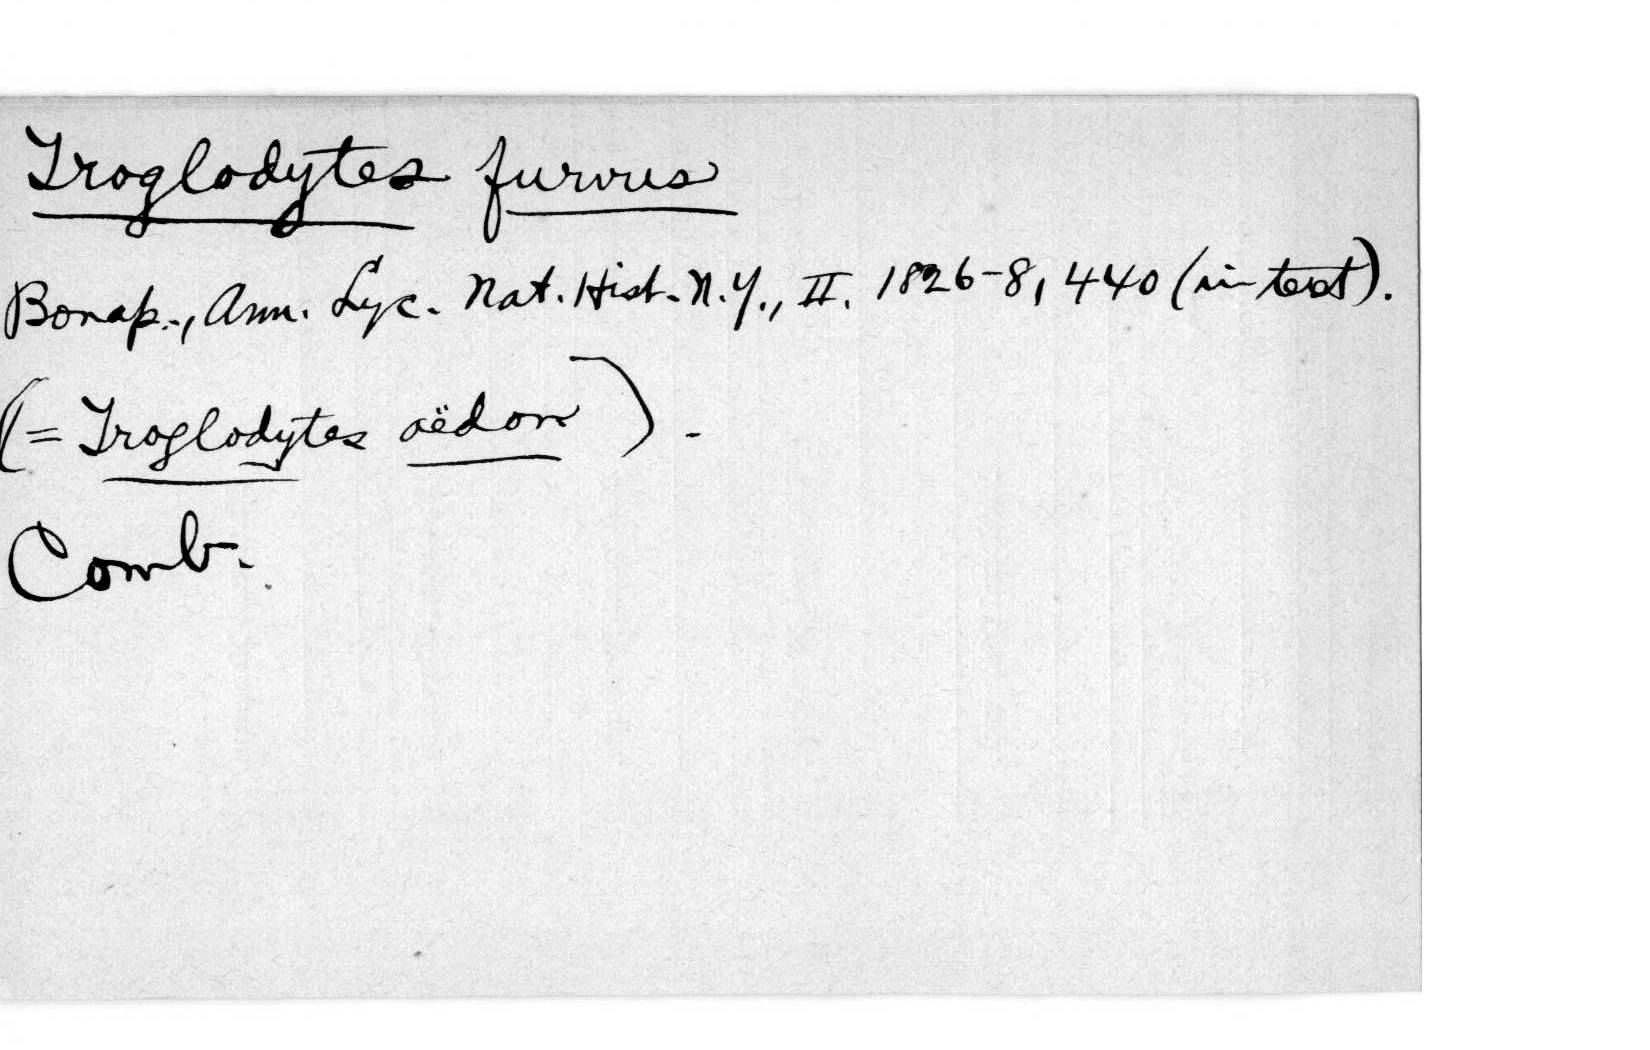 Troglodytes furvus
Bonap., Ann. Lyc. Nat. Hist. N.Y., II. 1826-8, 440 (in text).
(= Troglodytes aëdon).
Comb.